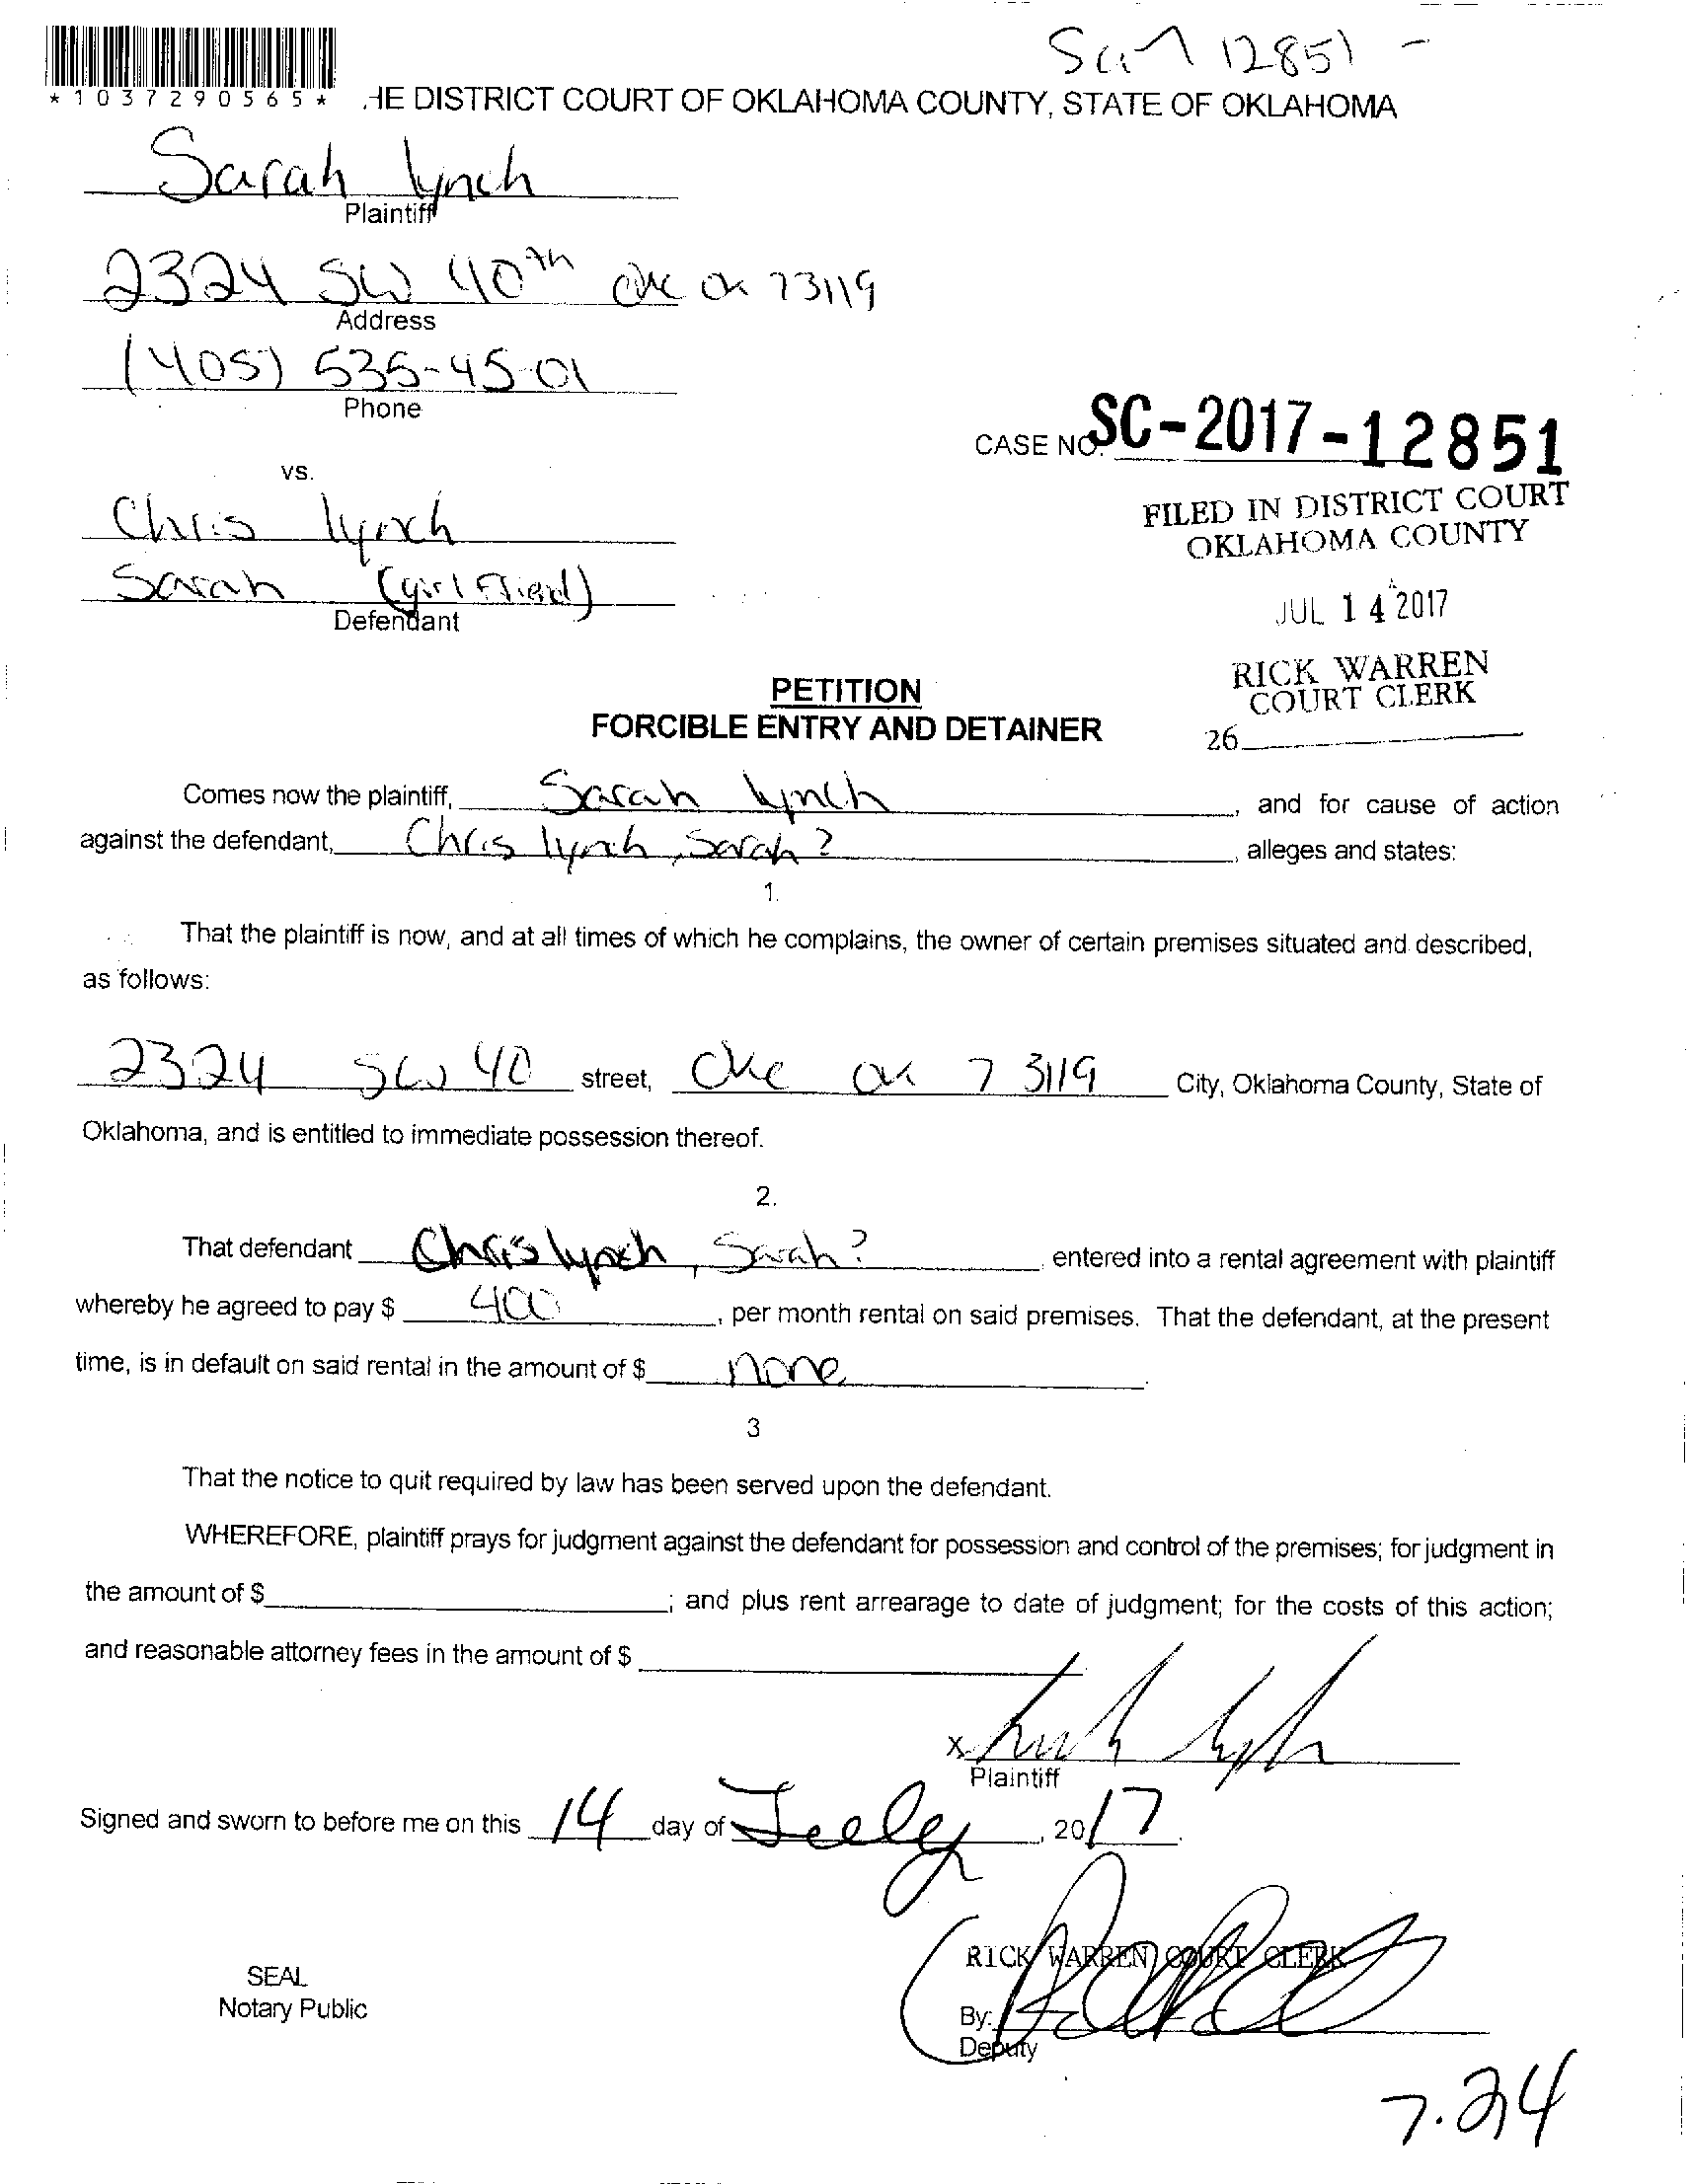 12851 -
* 1 0 3 7 2 9 0 5 6 5 *
HE DISTRICT COURT OF OKLAHOMA COUNTY, STATE OF OKLAHOMA
Sarah Lynch
Plaintiff
2324 SW 40th okc ok 73119
Address
(405) 535-45-01
Phone
CASE NO. SC-2017-12851
vs.
Chris lynch
FILED IN DISTRICT COURT
OKLAHOMA COUNTY
Sarah (girl friend)
Defendant
JUL 14 2017
RICK WARREN
COURT CLERK
26
PETITION
FORCIBLE ENTRY AND DETAINER
Comes now the plaintiff, Sarah Lynch, and for cause of action
against the defendant, Chris lynch, Sarah?, alleges and states:
1.
That the plaintiff is now, and at all times of which he complains, the owner of certain premises situated and described,
as follows:
2324 SW 40 street, Okc ok 73119 City, Oklahoma County, State of
Oklahoma, and is entitled to immediate possession thereof.
2.
That defendant Chris lynch, Sarah? entered into a rental agreement with plaintiff
whereby he agreed to pay $ 400, per month rental on said premises. That the defendant, at the present
time, is in default on said rental in the amount of $ none
3
That the notice to quit required by law has been served upon the defendant.
WHEREFORE, plaintiff prays for judgment against the defendant for possession and control of the premises; for judgment in
the amount of $ ; and plus rent arrearage to date of judgment; for the costs of this action;
and reasonable attorney fees in the amount of $
X
Plaintiff
Signed and sworn to before me on this 14 day of July, 2017
RICK WARREN, COURT CLERK
SEAL
Notary Public
By:
Deputy
7.24